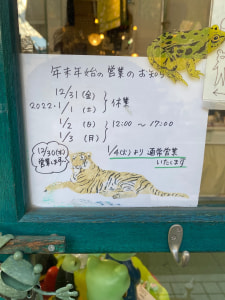 年末年始の営業のお知らせ
12/31(金)
2022.1/1(土) 休業
1/2(日)
1/3(月) 12:00〜17:00
12/30(木)
営業します
1/4(火)より通常営業
いたします